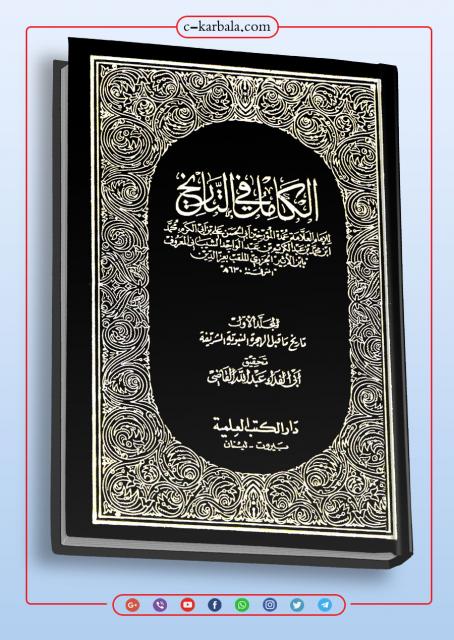 c-karbala.com
الكامل في التاريخ
للإمام العلامة عمدة المؤرخين أبي الحسن علي بن أبي الكرم محمد
ابن محمد بن عبد الكريم بن عبد الواحد الشيباني المعروف
بابن الأثير الجزري الملقب بعز الدين
المتوفى سنة ٦٣٠ هـ
المجلد الأول
تاريخ ما قبل الهجرة النبوية الشريفة
تحقيق
أبي الفداء عبد الله القاضي
دار الكتب العلمية
بيروت - لبنان